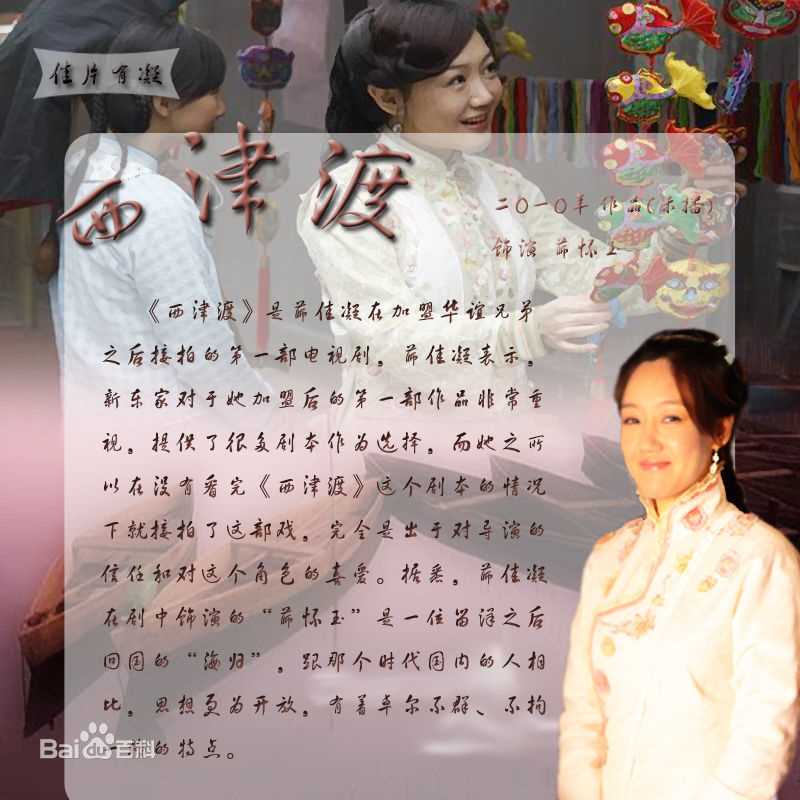 佳片有凝
西津渡
二〇一〇年作品(未播)
饰演 茆怀玉
《西津渡》是茆佳凝在加盟华谊兄弟
之后接拍的第一部电视剧，茆佳凝表示，
新东家对于她加盟后的第一部作品非常重
视，提供了很多剧本作为选择，而她之所
以在没有看完《西津渡》这个剧本的情况
下就接拍了这部戏，完全是出于对导演的
信任和对这个角色的喜爱。据悉，茆佳凝
在剧中饰演的“茆怀玉”是一位留洋之后
回国的“海归”，跟那个时代国内的人相
比，思想更为开放，有着卓尔不群、不拘
一格的特点。
Bai du 百科